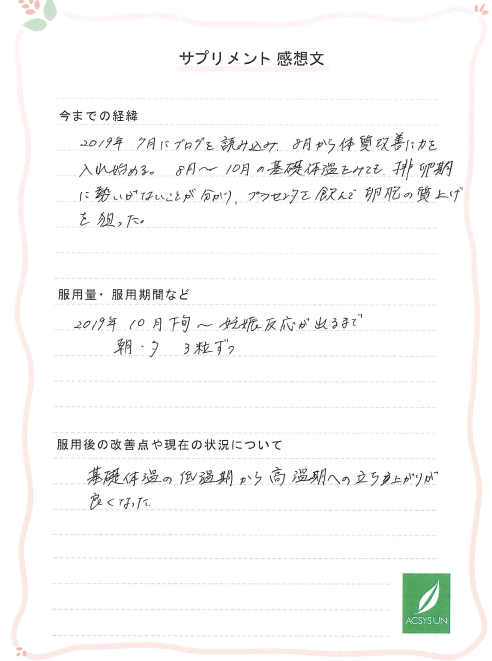 サプリメント 感想文
今までの経緯
2019年 7月にブログを読み込み、8月から体質改善に力を
入れ始める。 8月〜10月の基礎体温をみても、排卵期
に勢いがないことが分かり、プラセンタを飲んで卵胞の質上げ
を狙った。
服用量・服用期間など
2019年10月下旬〜妊娠反応が出るまで
朝・夕 3粒ずつ
服用後の改善点や現在の状況について
基礎体温の低温期から高温期への立ち上がりが
良くなった。
ACSYSUN